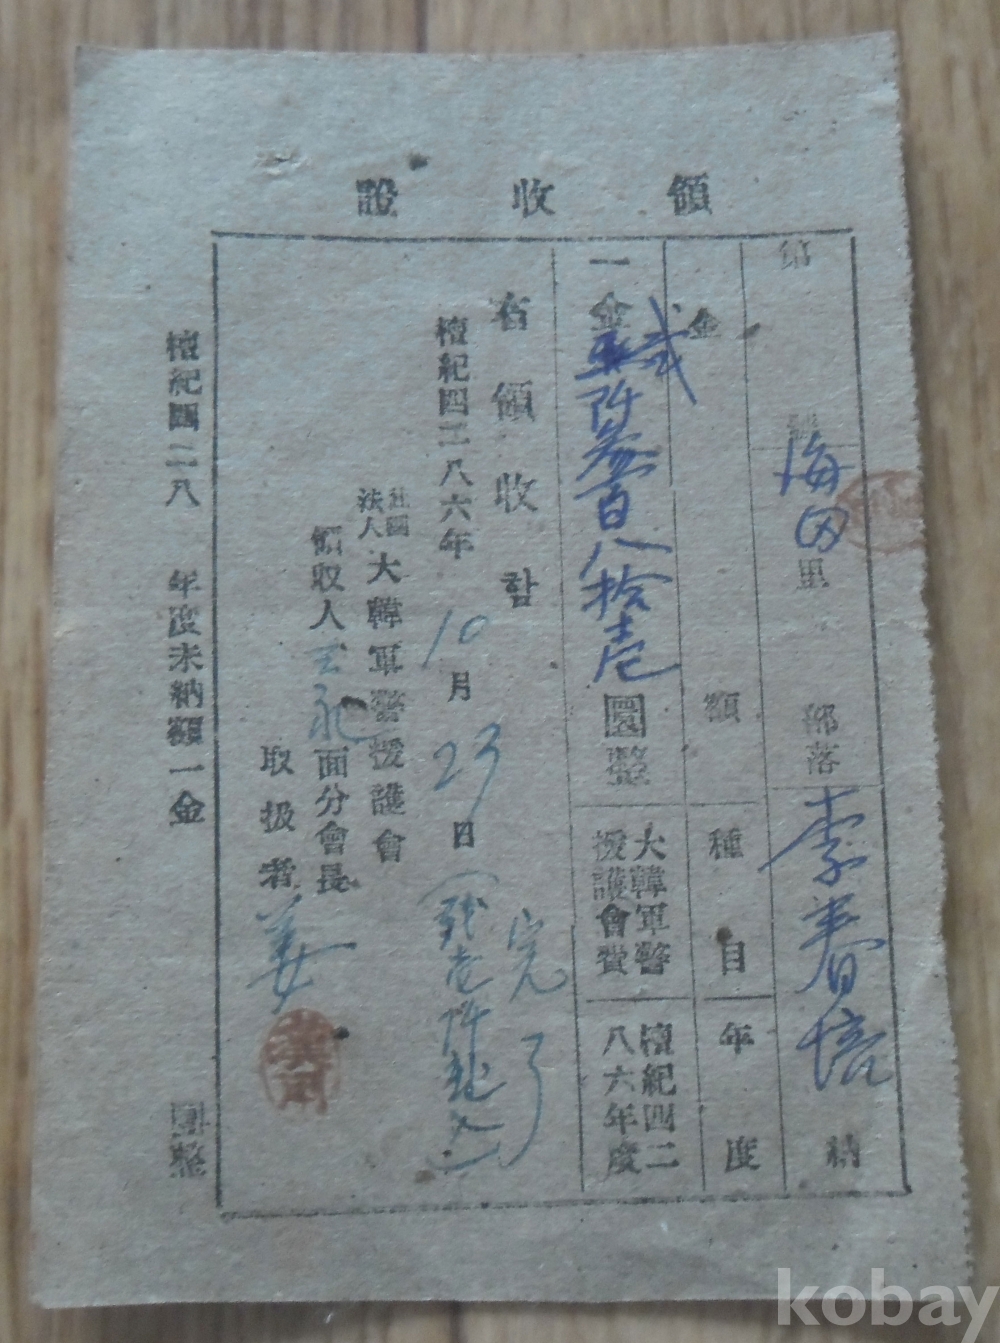 領收證
第 號 海田里 部落 李春培 納
金額 種目 年度
一金貳阡參百八拾壱圜整 大韓軍警援護會費 檀紀四二八六年度
右領收함
檀紀四二八六年10月23日
完了
社團法人大韓軍警援護會
領收人 面分會長
取扱者 姜
檀紀四二八 年度未納額一金 圜整
kobay